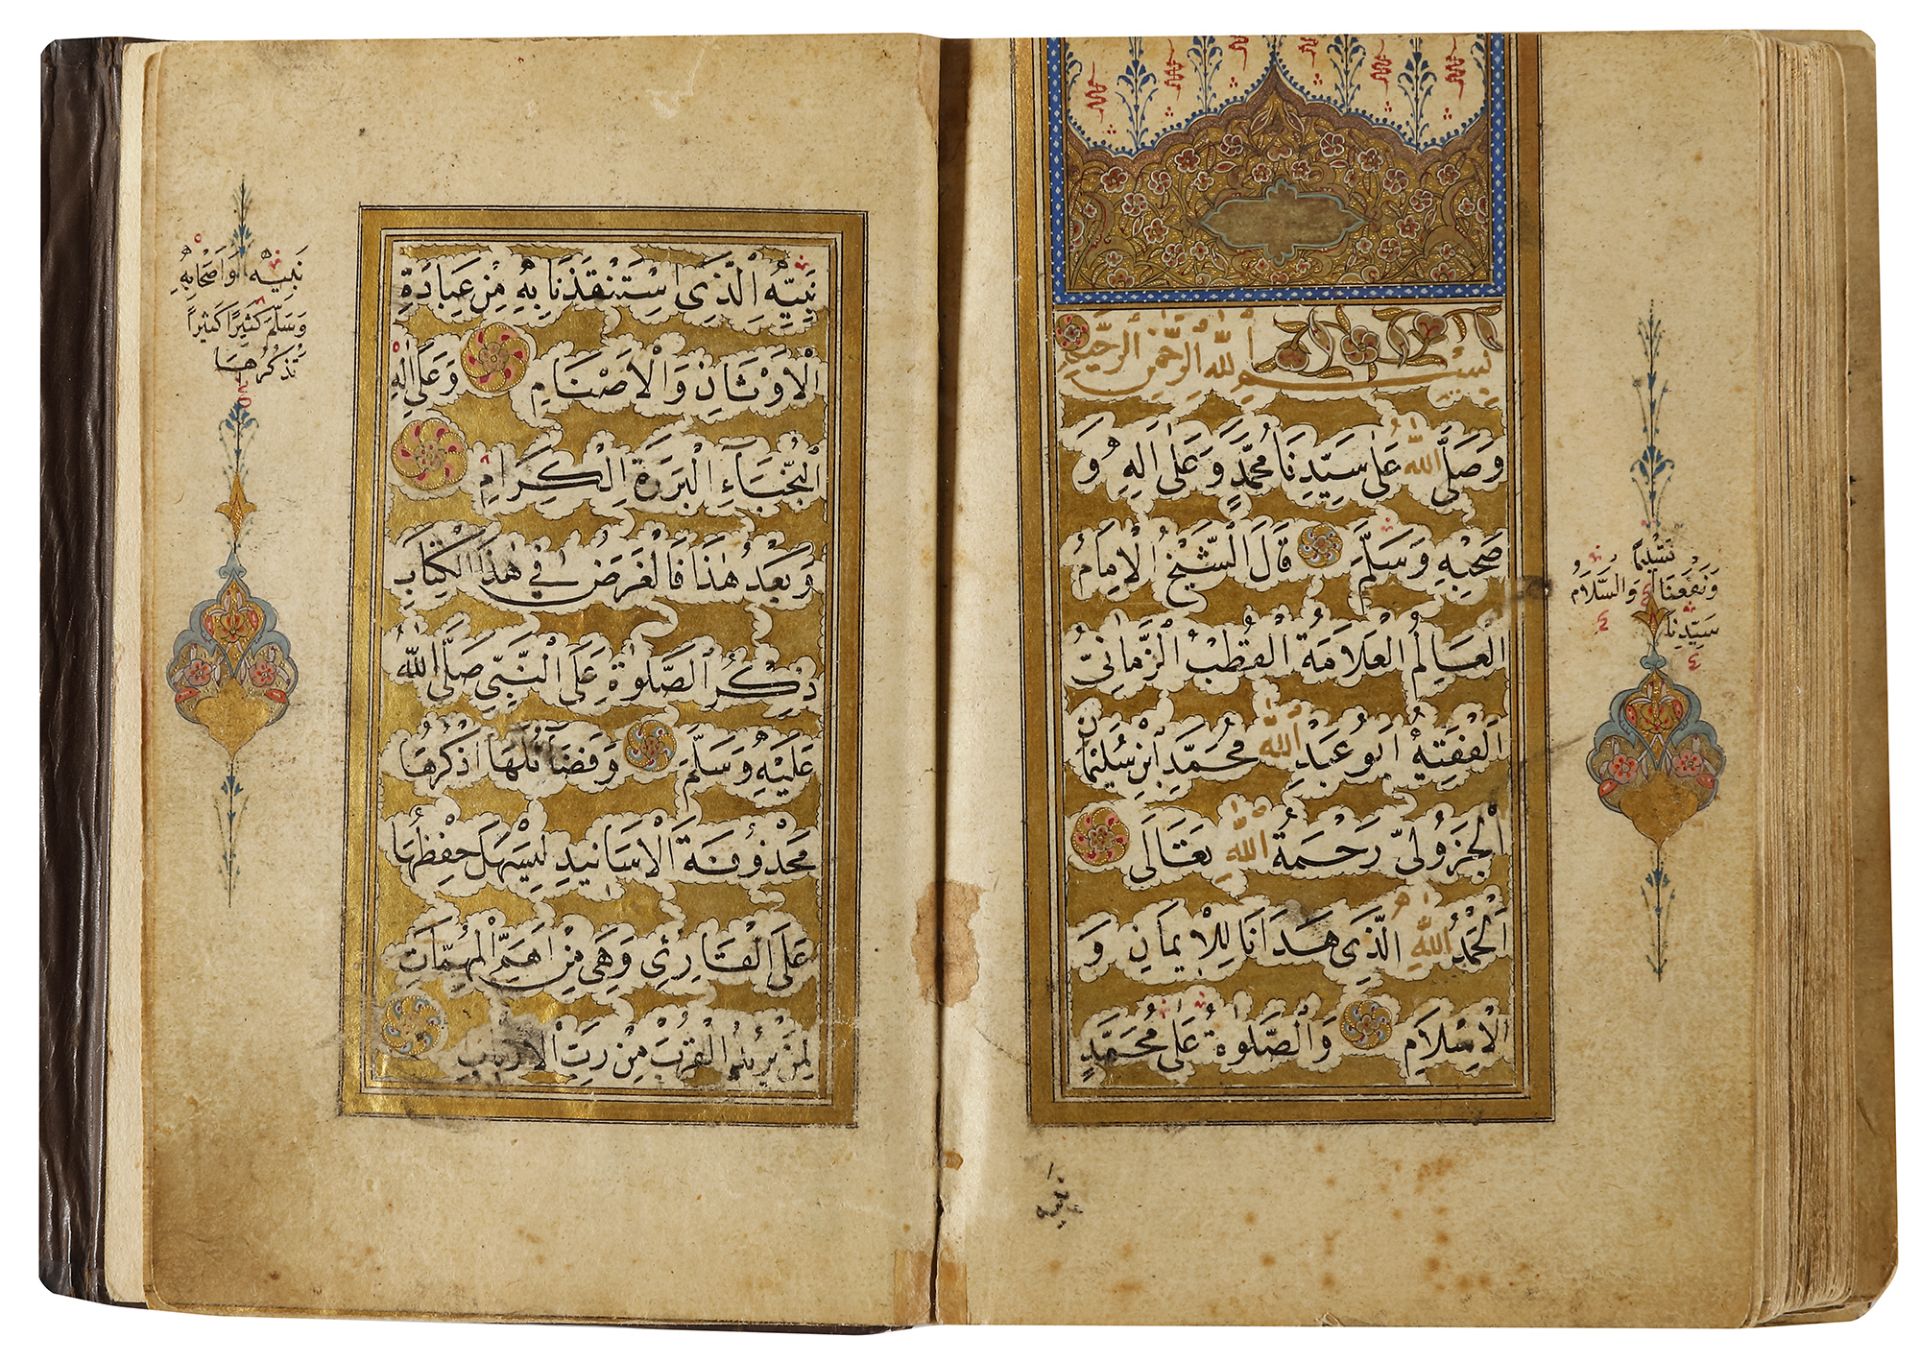 بِسْمِ اللهِ الرَّحْمٰنِ الرَّحِيمِ
وَصَلَّى اللهُ عَلَى سَيِّدِنَا مُحَمَّدٍ وَعَلَى اٰلِهِ وَ
صَحْبِهِ وَسَلَّمَ قَالَ الشَّيْخُ الْاِمَامُ
الْعَالِمُ الْعَلَامَةُ الْقُطْبُ الزَّمَانِىُّ
الْفَقِيهُ اَبُو عَبْدِ اللهِ مُحَمَّدِ ابْنِ سُلَيْمَانَ
الْجَزُولِىّ رَحْمَةُ اللهِ تَعَالَى
اَلْحَمْدُ اللهِ الَّذِى هَدَانَا لِلْاِيمَانِ وَ
الْاِسْلَامِ وَالصَّلٰوةُ عَلٰى مُحَمَّدٍ
نَبِيِّهِ
وَنَفَعَنَا وَالسَّلَامُ
سَيِّدِنَا
نَبِيِّهِ الَّذِى اسْتَنْقَذَنَا بِهِ مِنْ عِبَادَةِ
الْاَوْثَانِ وَالْاَصْنَامِ وَعَلَى اٰلِهِ
النُّجَبَاءِ الْبَرَرَةِ الْكِرَامِ
وَبَعْدُ هٰذَا فَالْغَرَضُ فِى هٰذَا الْكِتَابِ
ذِكْرُ الصَّلٰوةِ عَلَى النَّبِيِّ صَلَّى اللهُ
عَلَيْهِ وَسَلَّمَ وَفَضَآئِلُهَا اَذْكُرُهَا
مَحْذُوفَةَ الْاَسَانِيدِ لِيَسْهُلَ حِفْظُهَا
عَلَى الْقَارِئِ وَهِىَ مِنْ اَهَمِّ الْمُهِمَّاتِ
لِمَنْ يُرِيدُ الْقُرْبَ مِنْ رَبِّ الْاَرْبَابِ
نَبِيِّهِ وَاَصْحَابِهِ
وَسَلَّمَ كَثِيرًا كَثِيرًا
نَذْكُرُهَا